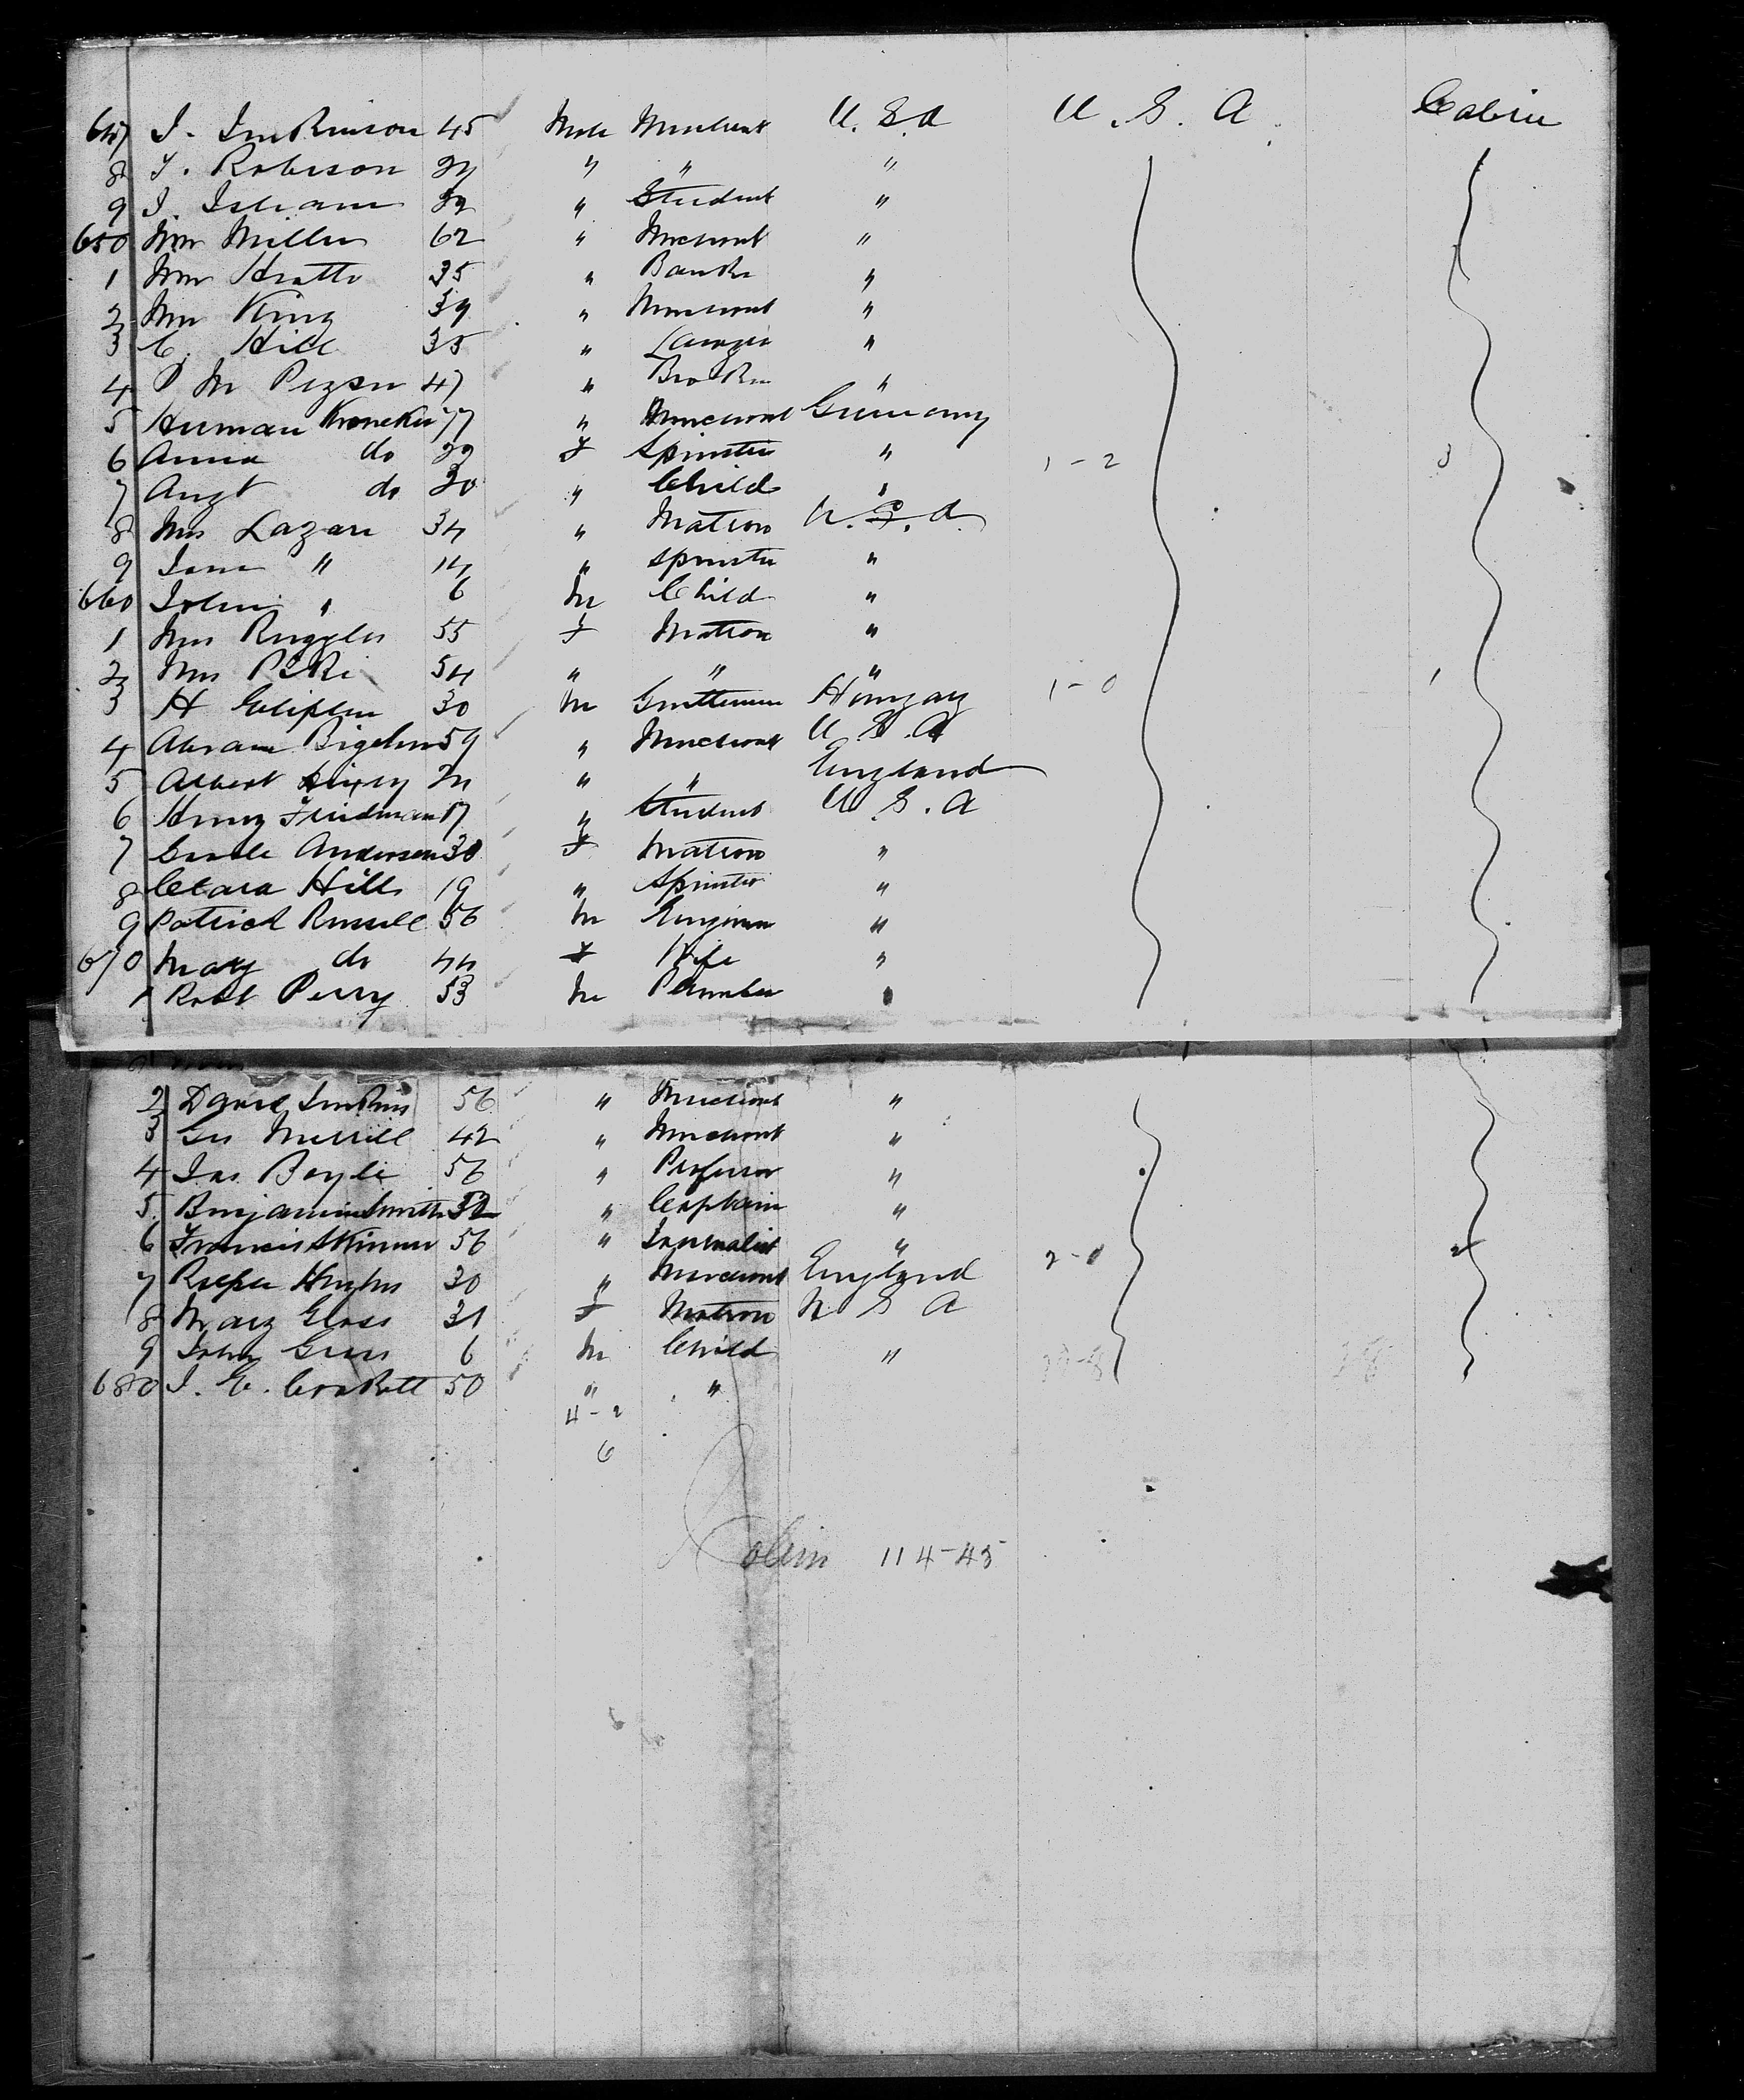 647 J. Jenkinson 45 Male Merchant U.S.A U.S.A. Cabin
8 T. Robison " " "
9 J. Isham " Student "
650 Wm Miller 62 " Merchant "
1 Wm 35 " Banker "
2 Wm King 39 " Merchant "
3 C. Hill 35 " Lawyer "
4 P M 47 " Broker "
5 Herman " Merchant Germany
6 Anna do F Spinster " 1-2 3
7 Augt do " Child "
8 Mrs Lazare 34 " Matron U.S.A.
9 Jane " 14 " Spinster "
660 John " 6 M Child "
1 Mrs Ruggles 55 F Matron "
2 Mrs 54 " " "
3 H 30 M Gentleman Hungary 1-0 1
4 Abram Bigelow 59 " Merchant U S A
5 Albert " " England
6 Henry Friedman 17 " Student U.S.A
7 Anderson 30 F Matron "
8 Clara Hills 19 " Spinster "
9 Patrick Russell 56 M Engineer "
670 Mary do 44 F Wife "
1 Robt Perry 53 M Plumber "
2 David Jenkins 56 " Merchant "
3 Geo Merrill 42 " Merchant "
4 Jas Boyle 56 " Professor "
5 Benjamin Smith " Captain "
6 Francis Skinner 56 " Journalist "
7 Hughes 30 " Merchant England 2-0 2
8 Mary Glass 31 F Matron U S A
9 John Grass 6 M Child "
680 J. E. Corbett 50 " "
4-2
6
Cabin 114-45